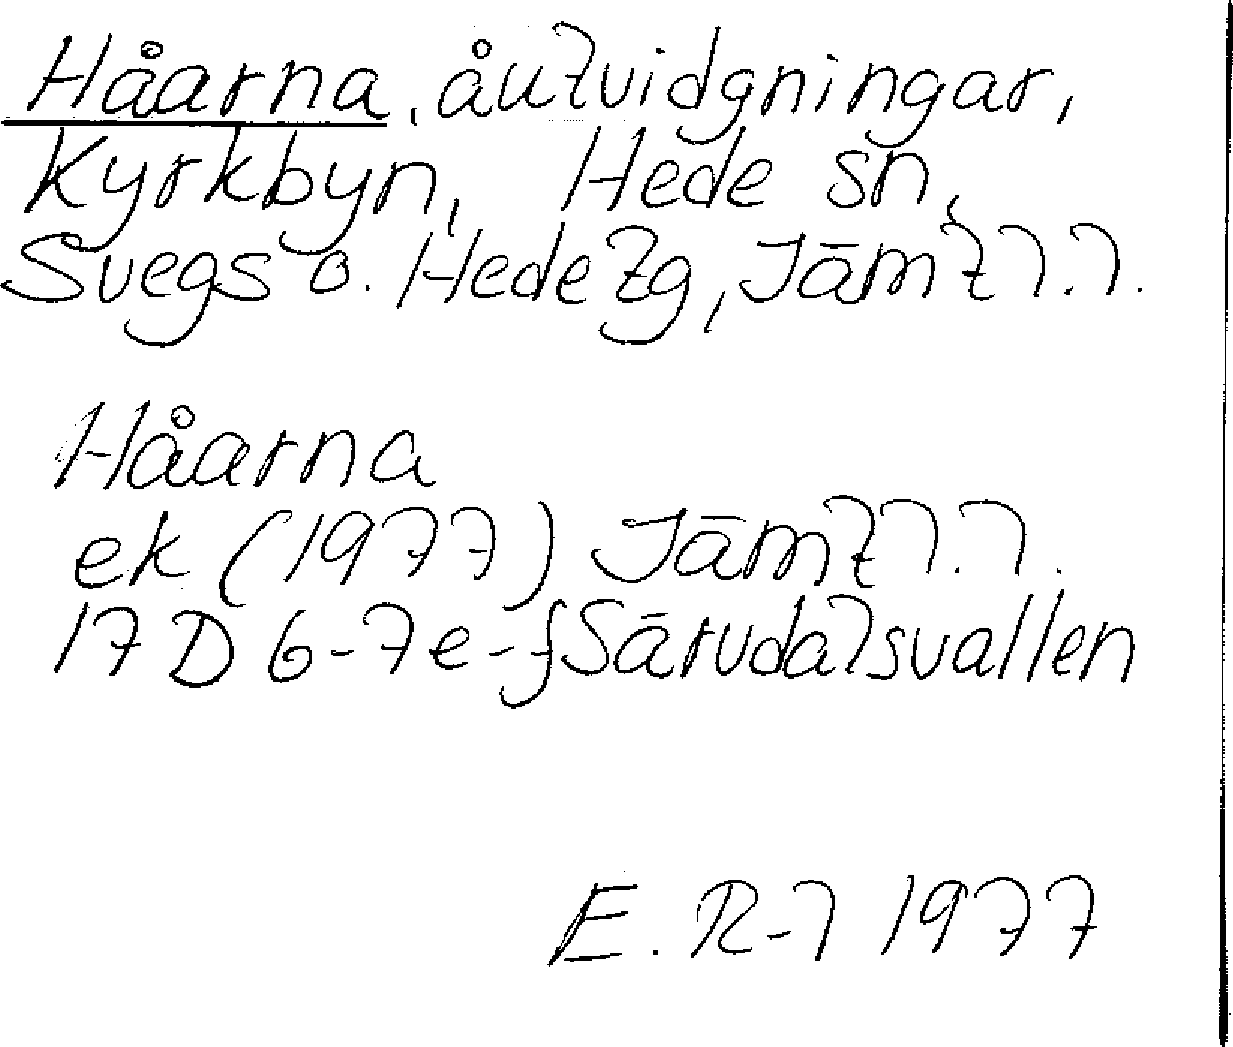 Håarna, åutvidgningar,
Kyrkbyn, Hede sn,
Svegs o. Hede tg, Jämtl.l.
Håarna
ek (1977) Jämtl.l.
17 D 6-7e-f Särvdalsvallen
E. R-l 1977